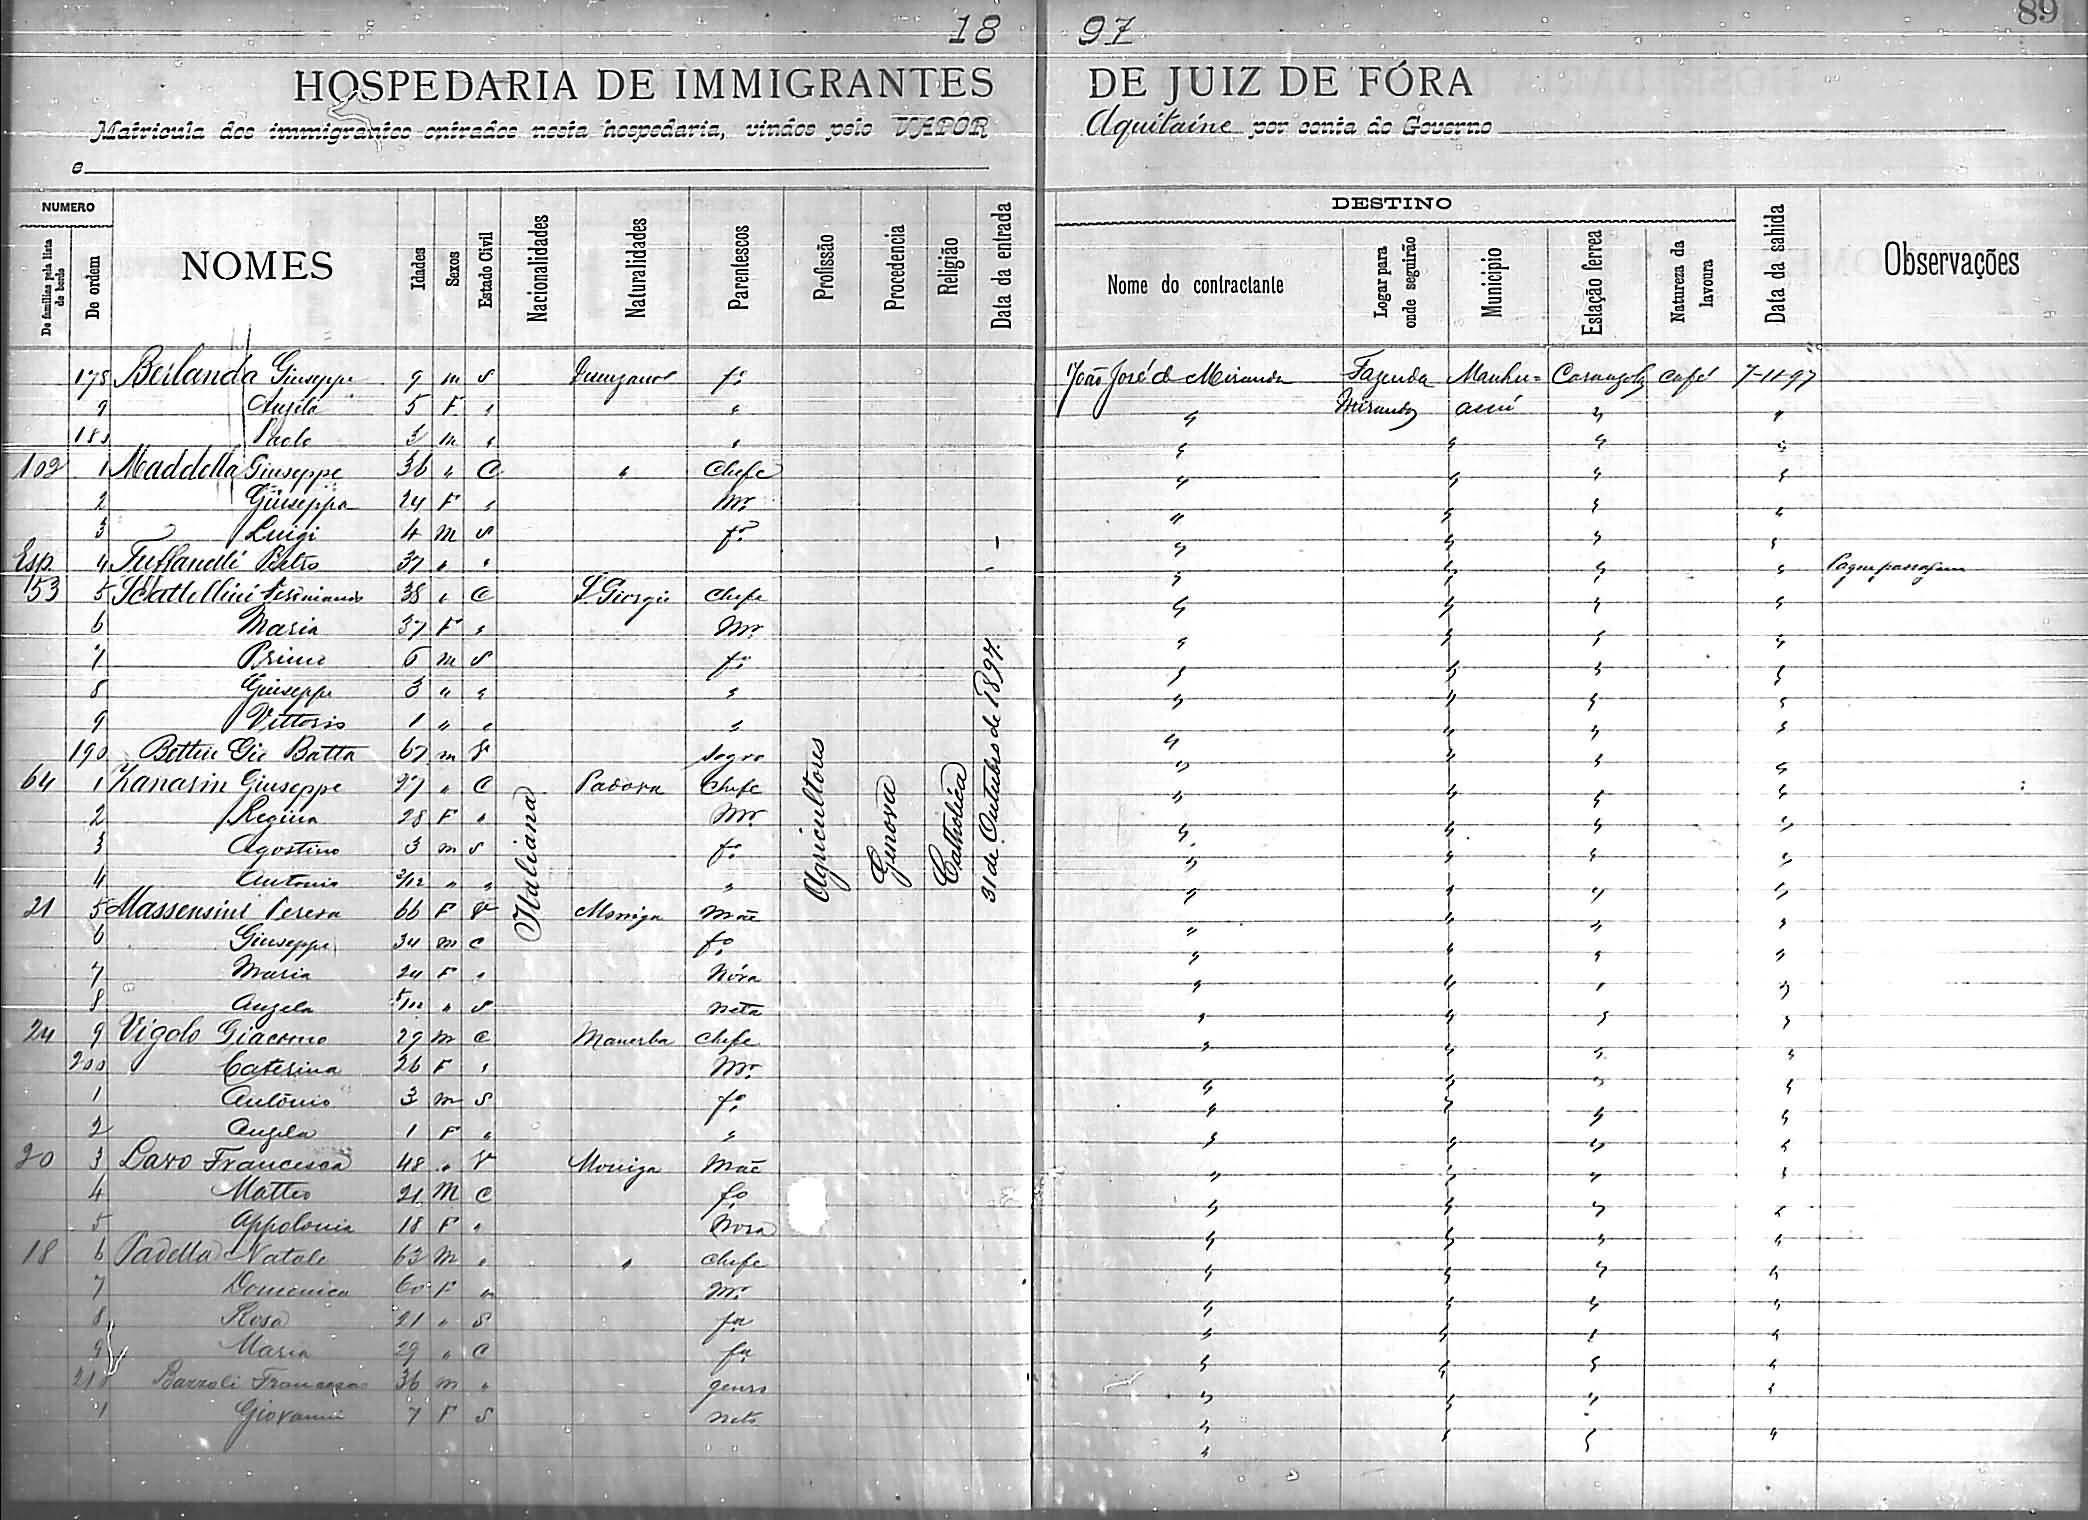 89
18 97
HOSPEDARIA DE IMMIGRANTES DE JUIZ DE FÓRA
Matricula dos immigrantes entrados nesta hospedaria, vindos pelo VAPÔR Aquitaine por conta do Governo
e
NUMERO DESTINO
De familias pela lista de bordo De ordem NOMES Idades Sexos Estado Civil Nacionalidades Naturalidades Parentescos Profissão Procedencia Religião Data da entrada Nome do contractante Logar para onde seguirão Municipio Estação ferrea Natureza da lavoura Data da sahida Observações
178 Berlanda Giuseppe 9 m S fo João José de Miranda Fazenda Manhu= Carangola café 7-11-97
9 Angela 5 F " " " Miranda assú " "
180 Paolo 3 m " " " " " "
102 1 Maddella Giuseppe 36 " C " Chefe " " " "
2 Giuseppa 24 F " Mr. " " " "
3 Luigi 4 m S fo " " " "
Esp. 4 Tuffanelli Pietro 37 " " " " " "
153 5 38 " C S. Giorgio Chefe " " " "
6 Maria 37 F " Mr. " " " "
7 Primo 6 m S fo " " " "
8 Giuseppe 3 " " " " " " "
9 Vittorio 1 " " " " " " "
190 Bettin Gio Batta 67 m V Sogro " " " "
64 1 Zanarin Giuseppe 27 " C Padova Chefe " " " "
2 Regina 28 F " Mr. " " " "
3 Agostino 3 m S fo " " " "
4 Antonio 3/12 " " " " " " "
21 5 Massensini Teresa 66 F V Moniga Mãe " " " "
6 Giuseppe 34 m C fo " " " "
7 Maria 24 F " Nóra " " " "
8 Angela 5/12 " S neta " " " "
24 9 Vigolo Giacomo 29 m C Manerba Chefe " " " "
200 Caterina 26 F " Mr. " " " "
1 Antônio 3 m S fo " " " "
2 Angela 1 F " " " " " "
20 3 Lavo Francesca 48 " V Moniga Mãe " " " "
4 Matteo 21 M C fo " " " "
5 Appolonia 18 F " Nora " " " "
18 6 Padella Natale 63 M " " Chefe " " " "
7 Domenica 60 F " Mr. " " " "
8 Rosa 21 " S fa " " " "
9 Maria 29 " C fa " " " "
210 Bazzoli Francesco 36 m " genro " " " "
1 Giovanni 7 F S neto " " " "
Italiana
Agricultores
Genova
Catholica
31 de Outubro de 1897.